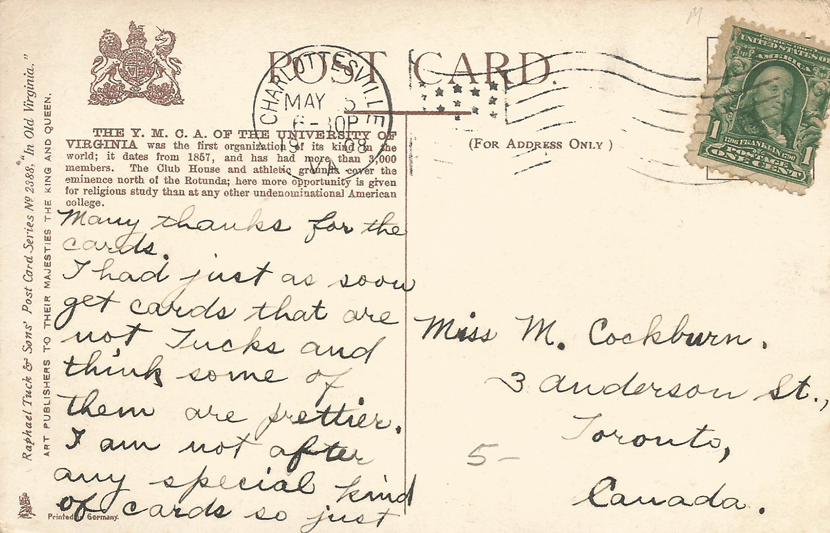 POST CARD.
CHARLOTTESVILLE
MAY 5
6-30P
1908
VA.
UNITED STATES OF
AMERICA
1706 FRANKLIN 1790
POSTAGE
1 1
ONE CENT
THE Y. M. C. A. OF THE UNIVERSITY OF
VIRGINIA was the first organization of its kind in the
world; it dates from 1857, and has had more than 3,000
members. The Club House and athletic grounds cover the
eminence north of the Rotunda; here more opportunity is given
for religious study than at any other undenominational American
college.
(FOR ADDRESS ONLY)
Raphael Tuck & Sons' Post Card Series No 2388. "In Old Virginia."
ART PUBLISHERS TO THEIR MAJESTIES THE KING AND QUEEN.
Many thanks for the
cards.
I had just as soon
get cards that are
not Tucks and
think some of
them are prettier.
I am not after
any special kind
of cards so just
Printed in Germany.
Miss M. Cockburn.
3 Anderson St.,
Toronto,
Canada.
5-
M